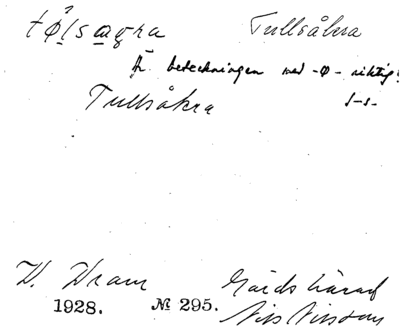 tø̂l̲sa̲gra Tullsåkra
Är beteckningen med -ø- riktig?
Tullsåkra
V. Vram Gärds härad
1928. № 295. Nils Nilsson